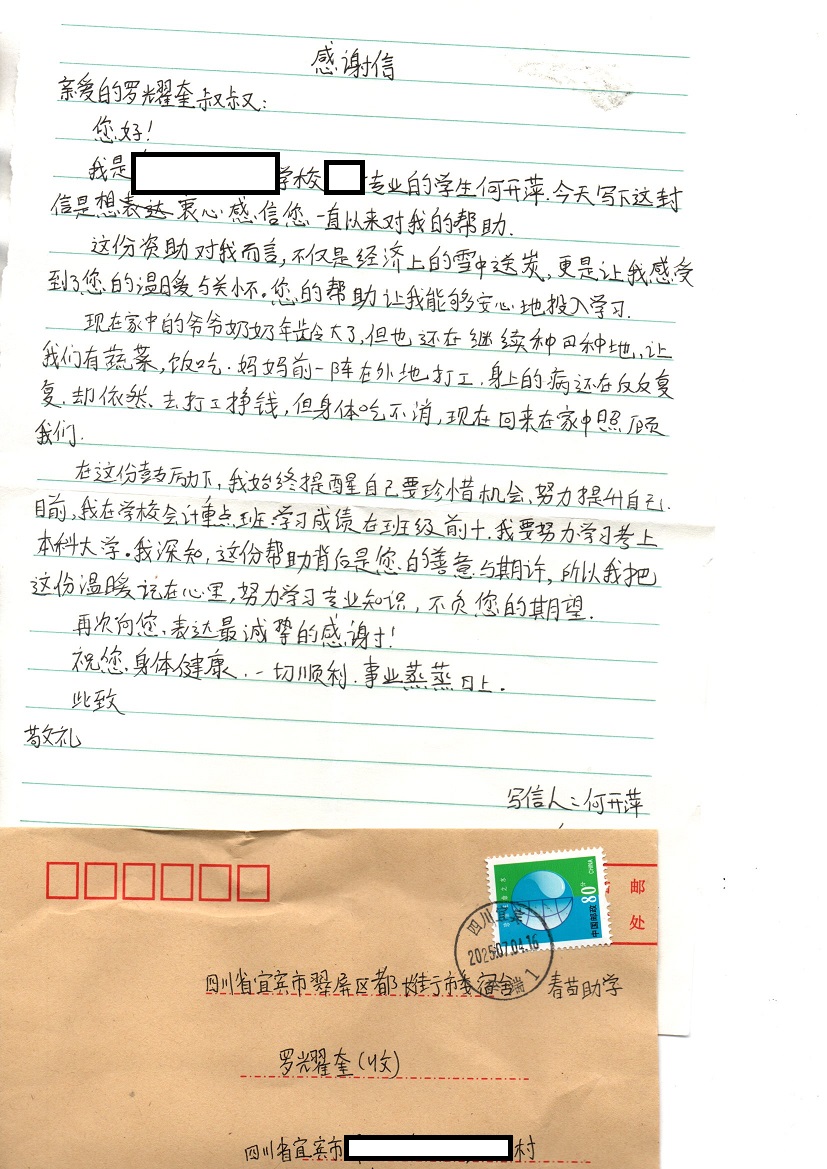 感谢信
亲爱的罗光耀奎叔叔：
您好！
我是 学校 专业的学生何开萍.今天写下这封
信是想表达衷心感信您一直以来对我的帮助.
这份资助对我而言,不仅是经济上的雪中送炭,更是让我感受
到了您的温暖与关怀。您的帮助让我能够安心地投入学习.
现在家中的爷爷奶奶年龄大了,但也还在继续种田种地,让
我们有蔬菜,饭吃.妈妈前一阵在外地打工.身上的病还在反反复
复.却依然、去打工挣钱,但身体吃不消,现在回来在家中照顾
我们.
在这份鼓励下,我始终提醒自己要珍惜机会,努力提升自己.
目前,我在学校会计重点班.学习成绩在班级前十.我要努力学习考上
本科大学。我深知,这份帮助背后是您的善意与期许,所以我把
这份温暖记在心里,努力学习专业知识,不负您的期望.
再次向您表达最诚挚的感谢!
祝您身体健康.一切顺利.事业蒸蒸日上。
此致
敬礼
写信人:何开萍
中国邮政 80分 CHINA
邮
处
四川宜宾
2025.07.04.16
1
四川省宜宾市翠屏区都长街市委宿舍 春苗助学
罗光耀奎(收)
四川省宜宾市 村